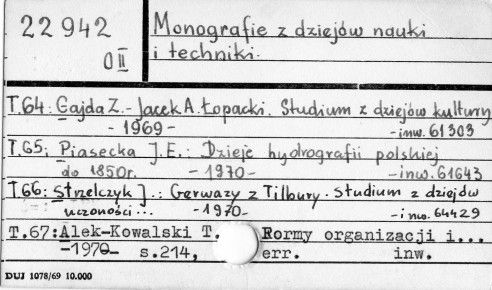 22942
O II
Monografie z dziejów nauki
i techniki.
T.64: Gajda Z. - Jacek A. Łopacki. Studium z dziejów kultury
- 1969 - - inw. 61303
T.65: Piasecka J.E.: Dzieje hydrografii polskiej
do 1850r. - 1970 - - inw. 61643
T.66: Strzelczyk J.: Gerwazy z Tilbury. Studium z dziejów
uczoności... - 1970 - - inw. 64429
T.67: Alek-Kowalski T. Formy organizacji i...
-1970- s.214, err. inw.
DUJ 1078/69 10.000